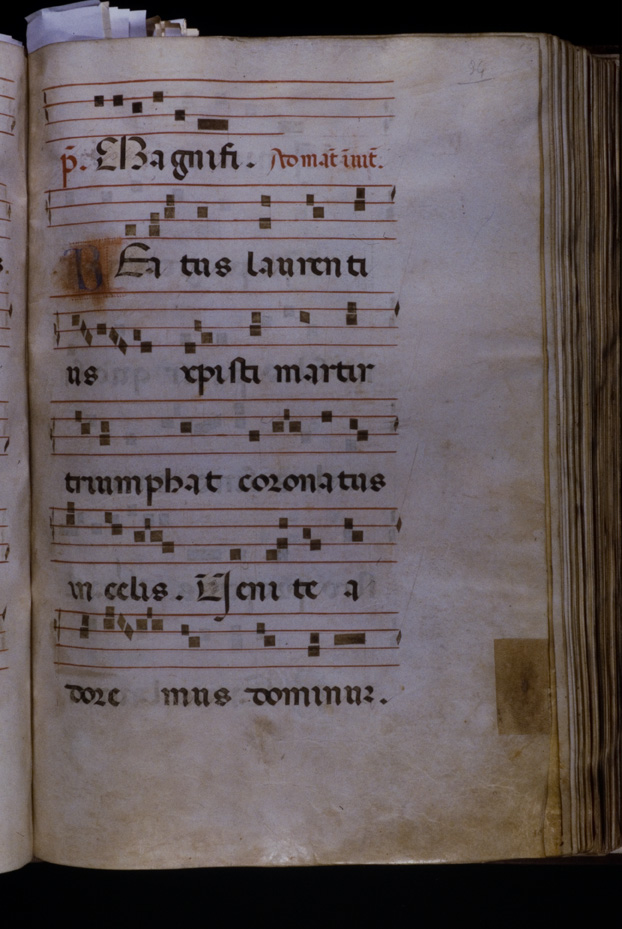 34
p̄. Magnifi. Ad mat̄ īuit̄.
BEa tus laurenti
us xpisti martir
triumphat coronatus
in celis. Ueni te a
dore mus dominum.